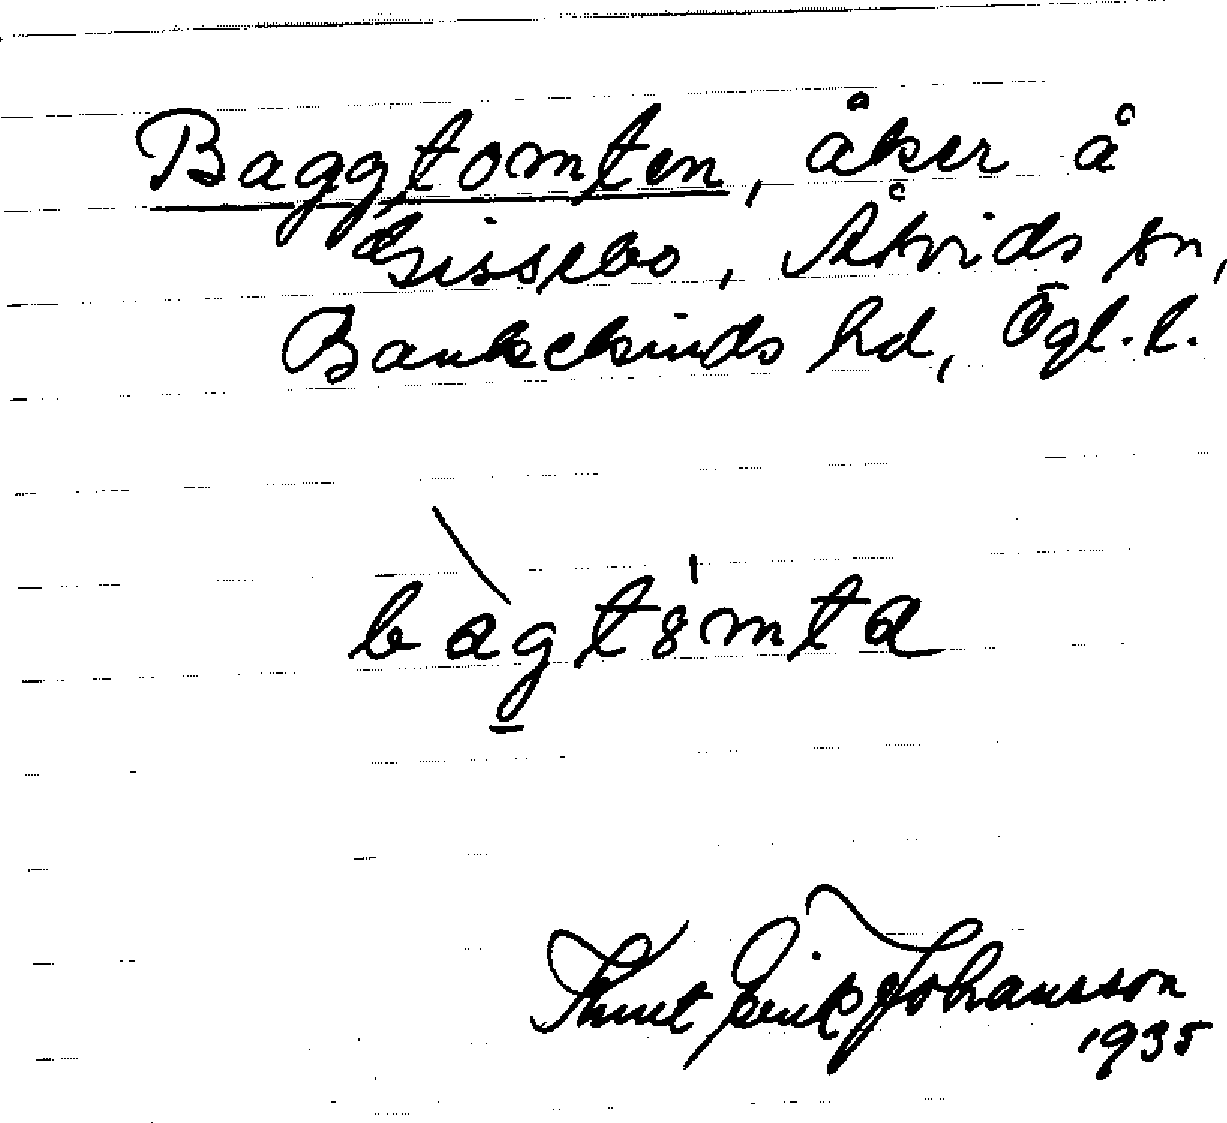 Baggtomten, åker å
Gissebo, Åtvids sn,
Bankekinds hd, Ögl. l.
bàgtȣ̍mta
Knut Erik Johansson
1935